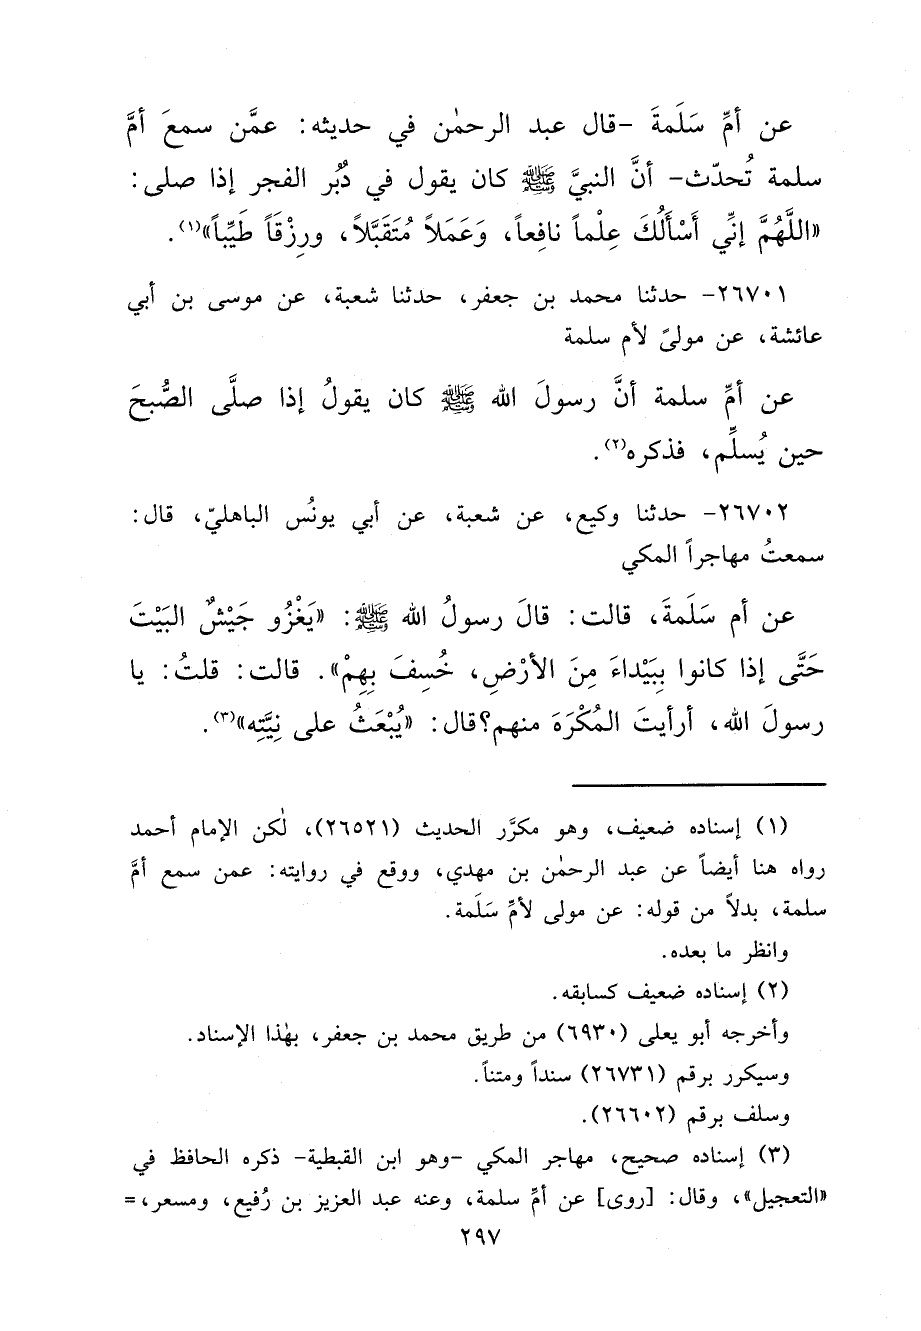 عن أمِّ سَلَمةَ -قال عبد الرحمٰن في حديثه: عمَّن سمعَ أمَّ
سلمة تُحدّث- أنَّ النبيَّ ﷺ كان يقول في دُبُر الفجر إذا صلى:
«اللَّهُمَّ إنِّي أَسْأَلُكَ عِلْماً نافِعاً، وَعَمَلاً مُتَقَبَّلاً، ورِزْقَاً طَيِّباً»(١).
٢٦٧٠١- حدثنا محمد بن جعفر، حدثنا شعبة، عن موسى بن أبي
عائشة، عن مولىً لأم سلمة
عن أمِّ سلمة أنَّ رسولَ الله ﷺ كان يقولُ إذا صلَّى الصُّبحَ
حين يُسلِّم، فذكره(٢).
٢٦٧٠٢- حدثنا وكيع، عن شعبة، عن أبي يونُس الباهليّ، قال:
سمعتُ مهاجراً المكي
عن أم سَلَمةَ، قالت: قالَ رسولُ الله ﷺ: «يَغْزُو جَيْشٌ البَيْتَ
حَتَّى إذا كانوا بِبَيْداءَ مِنَ الأرْضِ، خُسِفَ بِهِمْ». قالت: قلتُ: يا
رسولَ الله، أرأيتَ المُكْرَهَ منهم؟قال: «يُبْعَثُ على نِيَّتِه»(٣).
(١) إسناده ضعيف، وهو مكرَّر الحديث (٢٦٥٢١)، لٰكن الإمام أحمد
رواه هنا أيضاً عن عبد الرحمٰن بن مهدي، ووقع في روايته: عمن سمع أمَّ
سلمة، بدلاً من قوله: عن مولى لأمِّ سَلَمة.
وانظر ما بعده.
(٢) إسناده ضعيف كسابقه.
وأخرجه أبو يعلى (٦٩٣٠) من طريق محمد بن جعفر، بهٰذا الإسناد.
وسيكرر برقم (٢٦٧٣١) سنداً ومتناً.
وسلف برقم (٢٦٦٠٢).
(٣) إسناده صحيح، مهاجر المكي -وهو ابن القبطية- ذكره الحافظ في
«التعجيل»، وقال: [روى] عن أمِّ سلمة، وعنه عبد العزيز بن رُفيع، ومسعر،=
٢٩٧